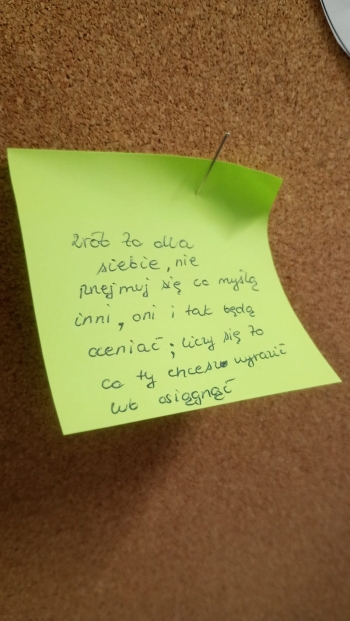 zrób to dla
siebie, nie
przejmuj się co myślą
inni, oni i tak będą
oceniać; liczy się to
co ty chcesz wyrazić
lub osiągnąć